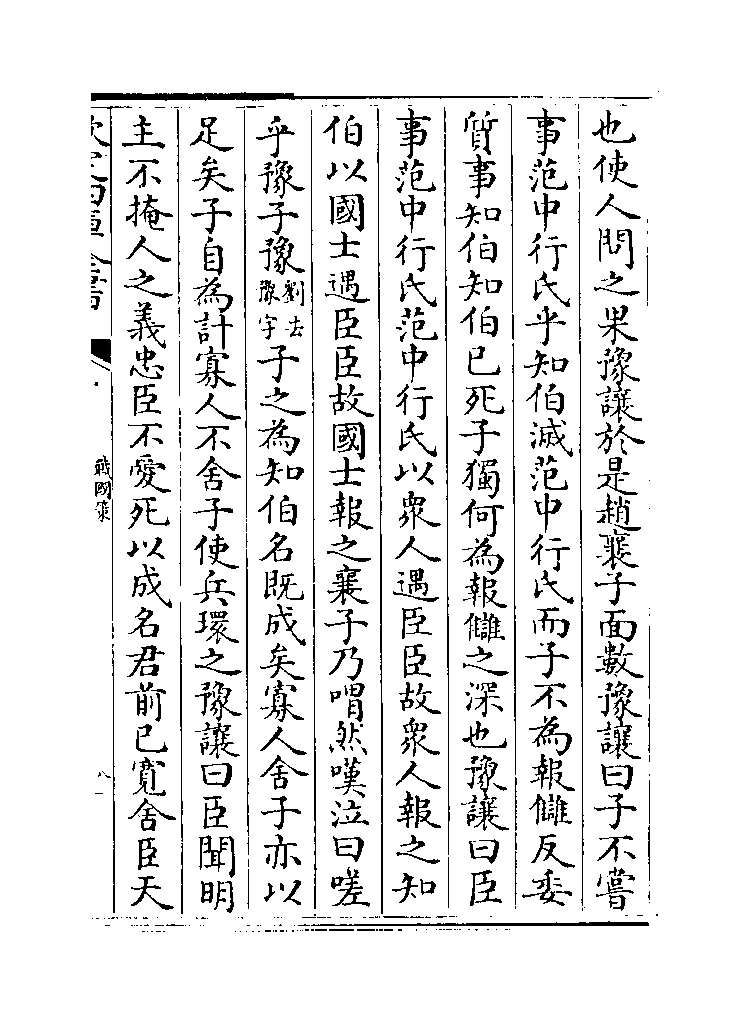 也使人問之果豫讓於是趙襄子面數豫讓曰子不嘗
事范中行氏乎知伯滅范中行氏而子不為報讎反委
質事知伯知伯已死子獨何為報讎之深也豫讓曰臣
事范中行氏范中行氏以衆人遇臣臣故衆人報之知
伯以國士遇臣臣故國士報之襄子乃喟然嘆泣曰嗟
乎豫子豫劉去豫字子之為知伯名既成矣寡人舍子亦以
足矣子自為計寡人不舍子使兵環之豫讓曰臣聞明
主不掩人之義忠臣不愛死以成名君前已寛舍臣天
欽定四庫全書
戰國策
八